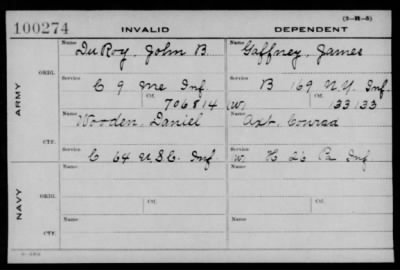 (3-H-5)
100274 INVALID DEPENDENT
Name Name
DuRoy, John B. Gaffney, James
ARMY
ORIG. Service Service
C 9 Me Inf. B 169 N.Y. Inf
Ctf. Ctf.
706814 (W) 133133
Name Name
Wooden, Daniel Axt, Conrad
CTF. Service Service
C 64 U.S.C. Inf. W. H 26 Pa Inf
NAVY
Name Name
ORIG. Ctf. Ctf.
Name Name
CTF.